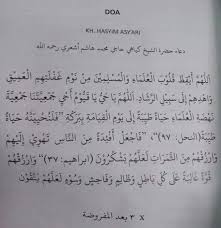 DOA
KH. HASYIM ASY'ARI
دعاء حضرة الشيخ كياهي حاجي محمد هاشم أشعري رحمه الله
اللهم أيقظ قلوب العلماء والمسلمين من نوم غفلتهم العميق
واهدهم إلى سبيل الرشاد. اللهم يا حي يا قيوم أحي جمعيتنا جمعية
نهضة العلماء حياة طيبة إلى يوم القيامة ببركة "فلنحيينه حياة
طيبة (النحل: ٩٧)"، "فاجعل أفئدة من الناس تهوي إليهم
وارزقهم من الثمرات لعلهم يشكرون (ابراهيم: ٣٧)" وارزقهم
قوة غالبة على كل باطل وظالم وفاحش وسوء لعلهم يتقون
٣ x بعد المفروضة